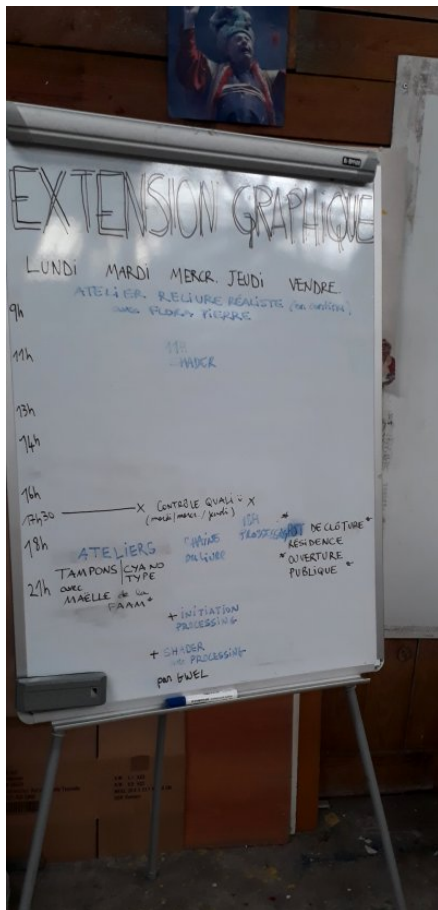 EXTENSION GRAPHIQUE
LUNDI MARDI MERCR. JEUDI VENDRE.
ATELIER RELIURE RÉALISTE
9h avec FLORA PIERRE
11h 11H
SHADER
13h
14h
16h
17h30 X CONTRÔLE QUALI X
(mardi/mercr./jeudi)
18h ATELIERS
TAMPONS CYANO TYPE
21h avec MAËLLE de la FAAM*
CHAÎNE DU LIVRE
18H
* DE CLÔTURE *
RÉSIDENCE
* OUVERTURE
PUBLIQUE *
+ INITIATION
PROCESSING
+ SHADER
PROCESSING
par GWEL